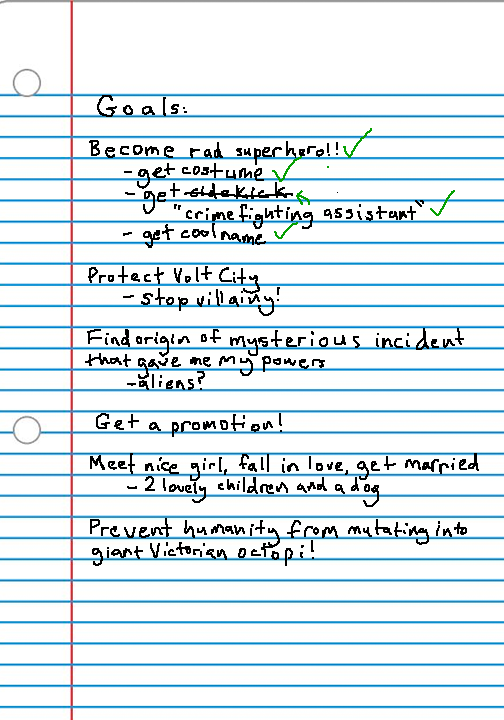 Goals:
Become rad superhero!!
- get costume
- get sidekick
"crime fighting assistant"
- get cool name
Protect Volt City
- stop villainy!
Find origin of mysterious incident
that gave me my powers
- aliens?
Get a promotion!
Meet nice girl, fall in love, get married
- 2 lovely children and a dog
Prevent humanity from mutating into
giant Victorian octopi!